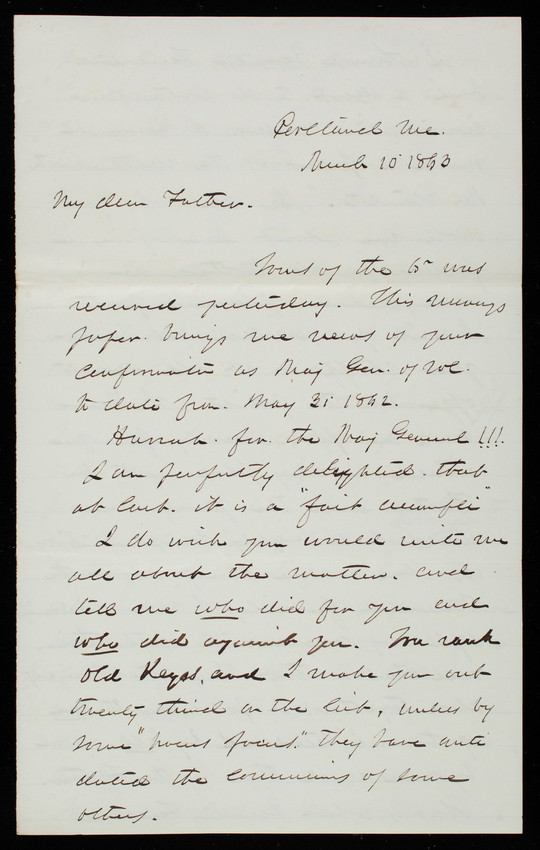 Portland Me.
March 10 1863
My dear Father.
Yours of the 6" was
received yesterday. This mornings
paper. brings me news of your
Confirmation as Maj Gen. of Vol.
to date from. May 31 1862.
Hurrah. for. the Maj General !!!
I am perfectly delighted. that
at last. it is a "fait accompli"
I do wish you would write me
all about the matter. and
tell me who did for you and
who did against you. You rank
Old Keyes, and I make you out
twenty third on the list, unless by
some "hocus pocus." they have anti
dated the commissions of some
others.